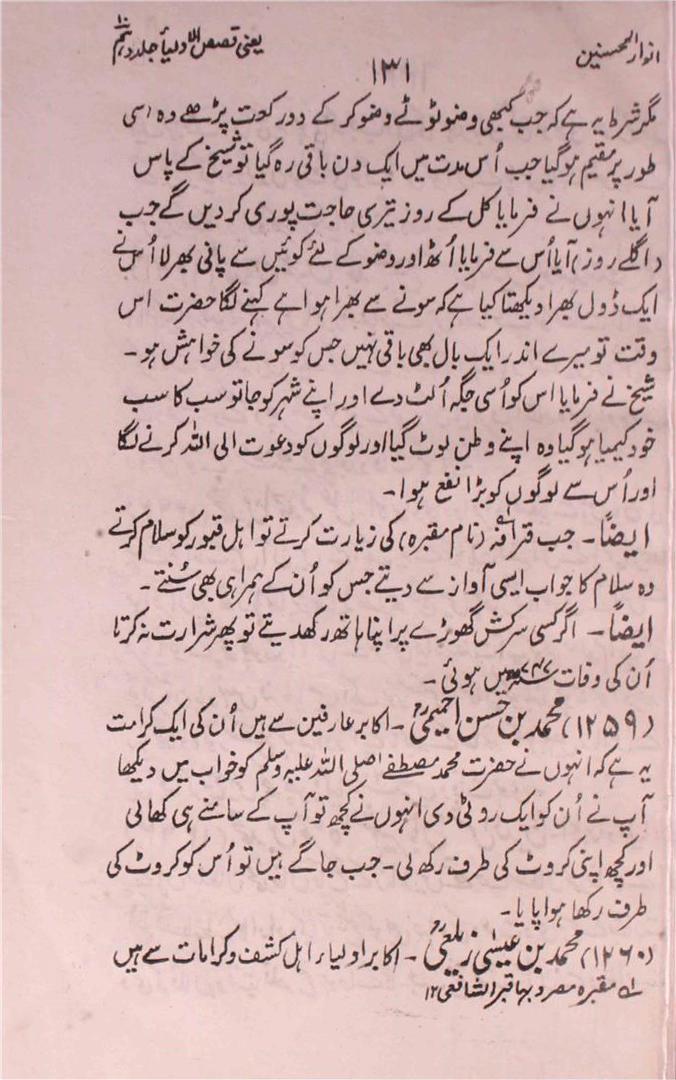 انوار المحسنین
یعنی قصص الاولیأ جلد دہم ۱۰
۱۳۱
مگر شرط یہ ہے کہ جب کبھی وضو ٹوٹے وضو کر کے دو رکعت پڑھے وہ اسی
طور پر مقیم ہوگیا جب اُس مدت میں ایک دن باقی رہ گیا تو شیخ کے پاس
آیا انہوں نے فرمایا کل کے روز تیری حاجت پوری کردیں گے جب
(اگلے روز) آیا اُس سے فرمایا اُٹھ اور وضو کے لئے کوئیں سے پانی بھر لا اُس نے
ایک ڈول بھرا دیکھتا کیا ہے کہ سونے سے بھرا ہوا ہے کہنے لگا حضرت اس
وقت تو میرے اندر ایک بال بھی باقی نہیں جس کو سونے کی خواہش ہو۔
شیخ نے فرمایا اس کو اُسی جگہ اُلٹ دے اور اپنے شہر کو جا تو سب کا سب
خود کیمیا ہوگیا وہ اپنے وطن لوٹ گیا اور لوگوں کو دعوت الی اللہ کرنے لگا
اور اُس سے لوگوں کو بڑا نفع ہوا۔
ایضاً۔ جب قرافہ لہ (نام مقبرہ) کی زیارت کرتے تو اہل قبور کو سلام کرتے
وہ سلام کا جواب ایسی آواز سے دیتے جس کو اُن کے ہمراہی بھی سُنتے۔
ایضاً۔ اگر کسی سرکش گھوڑے پر اپنا ہاتھ رکھدیتے تو پھر شرارت نہ کرتا
اُن کی وفات میں ہوئی۔
(۱۲۵۹) محمد بن حسن اخمیمیؒ۔ اکابر عارفین سے ہیں اُن کی ایک کرامت
یہ ہے کہ انہوں نے حضرت محمد مصطفےٰ صلی اللہ علیہ وسلم کو خواب میں دیکھا
آپ نے اُن کو ایک روٹی دی انہوں نے کچھ تو آپ کے سامنے ہی کھالی
اور کچھ اپنی کروٹ کی طرف رکھ لی۔ جب جاگے ہیں تو اُس کو کروٹ کی
طرف رکھا ہوا پایا۔
(۱۲۶۰) محمد بن عیسیٰ زیلعیؒ۔ اکابر اولیاء اہل کشف و کرامات سے ہیں
لہ مقبرہ مصر و بہا قبر الشافعی ۱۲